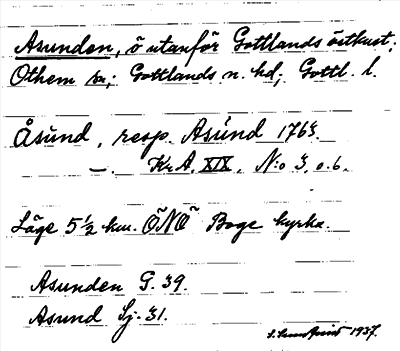 Asunden, ö utanför Gottlands östkust;
Othem sn; Gottlands n. hd; Gottl. l.
Åsund, resp. Asund 1763.
—. Kr.A. XIX, N:o 3, o. 6.
Läge 5½ km. ÖNÖ Boge kyrka.
Asunden G. 39.
Asund Sj. 31.
1937.